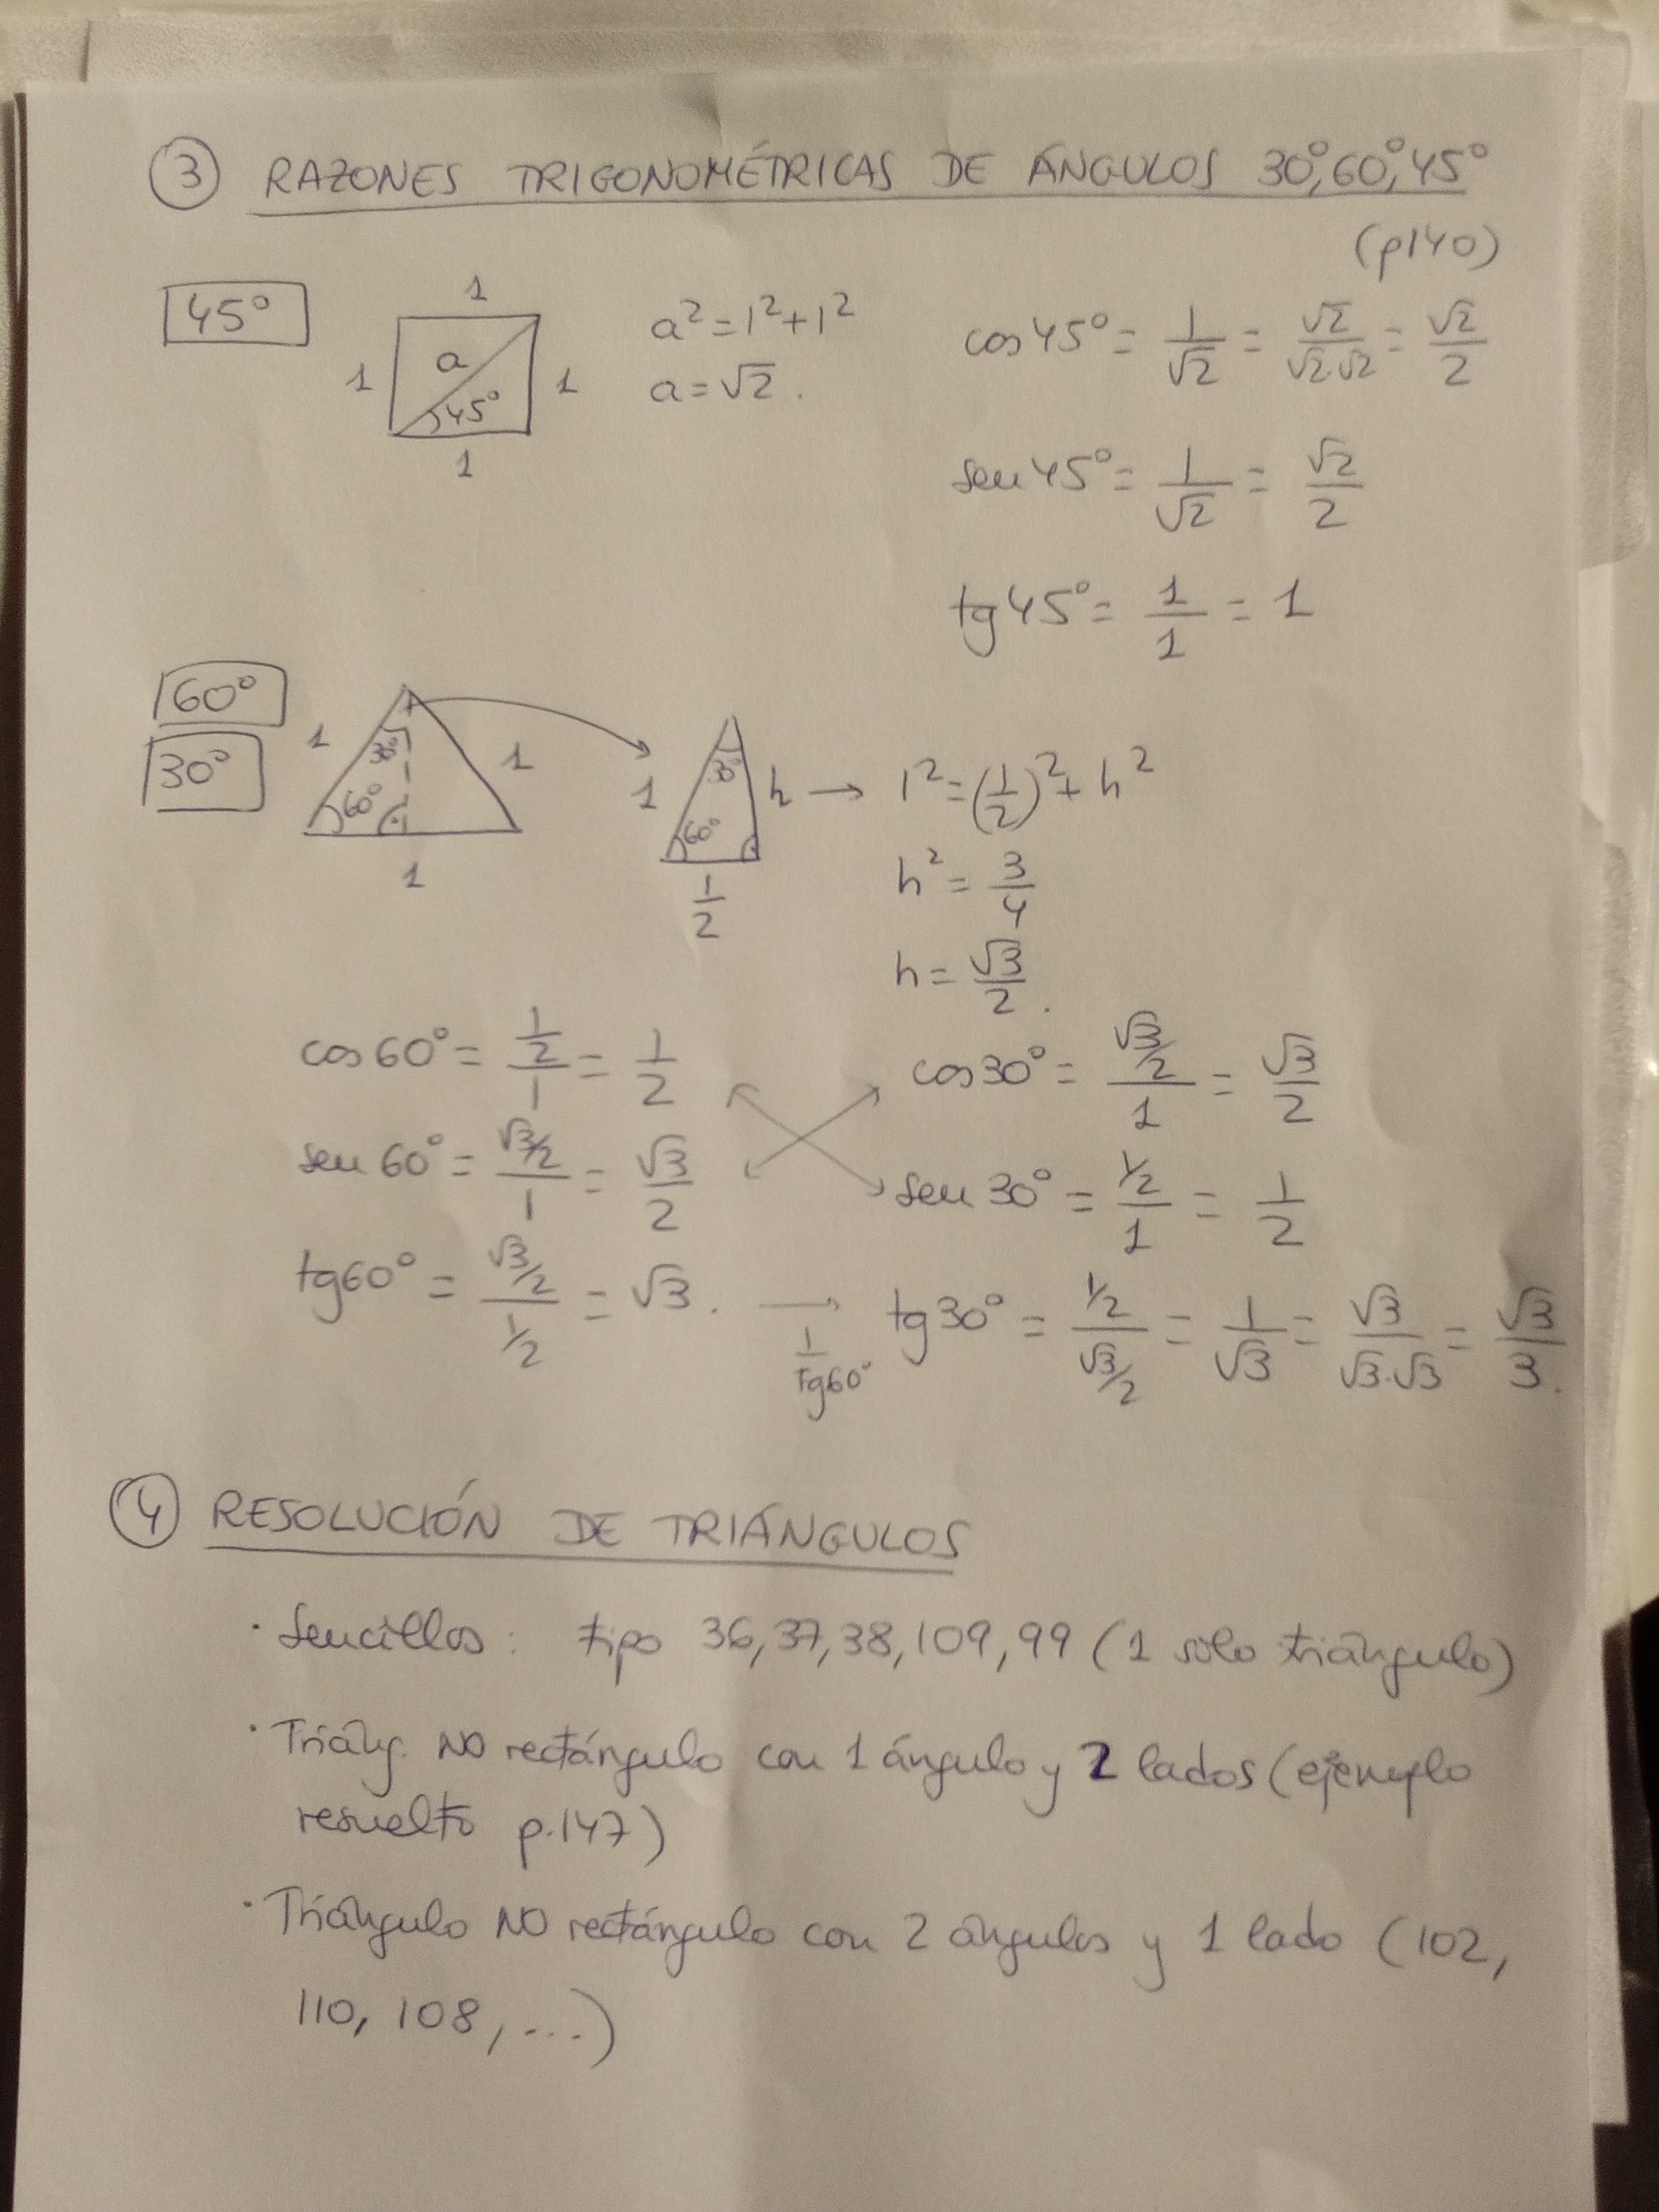 ③ RAZONES TRIGONOMÉTRICAS DE ÁNGULOS 30°, 60°, 45°
(p140)
45°
1
1 a 1
45°
1
a² = 1² + 1²
a = √2.
cos 45° = 1/√2 = √2/(√2·√2) = √2/2
sen 45° = 1/√2 = √2/2
tg 45° = 1/1 = 1
60°
30°
1 30° 1
60°
1
1 30° h → 1² = (1/2)² + h²
60°
1/2
h² = 3/4
h = √3/2.
cos 60° = (1/2)/1 = 1/2
sen 60° = (√3/2)/1 = √3/2
tg 60° = (√3/2)/(1/2) = √3. →
1/tg60°
cos 30° = (√3/2)/1 = √3/2
sen 30° = (1/2)/1 = 1/2
tg 30° = (1/2)/(√3/2) = 1/√3 = √3/(√3·√3) = √3/3.
④ RESOLUCIÓN DE TRIÁNGULOS
· Sencillos: tipo 36, 37, 38, 109, 99 (1 solo triángulo)
· Triáng. NO rectángulo con 1 ángulo y 2 lados (ejemplo
resuelto p.147)
· Triángulo NO rectángulo con 2 ángulos y 1 lado (102,
110, 108, ...)